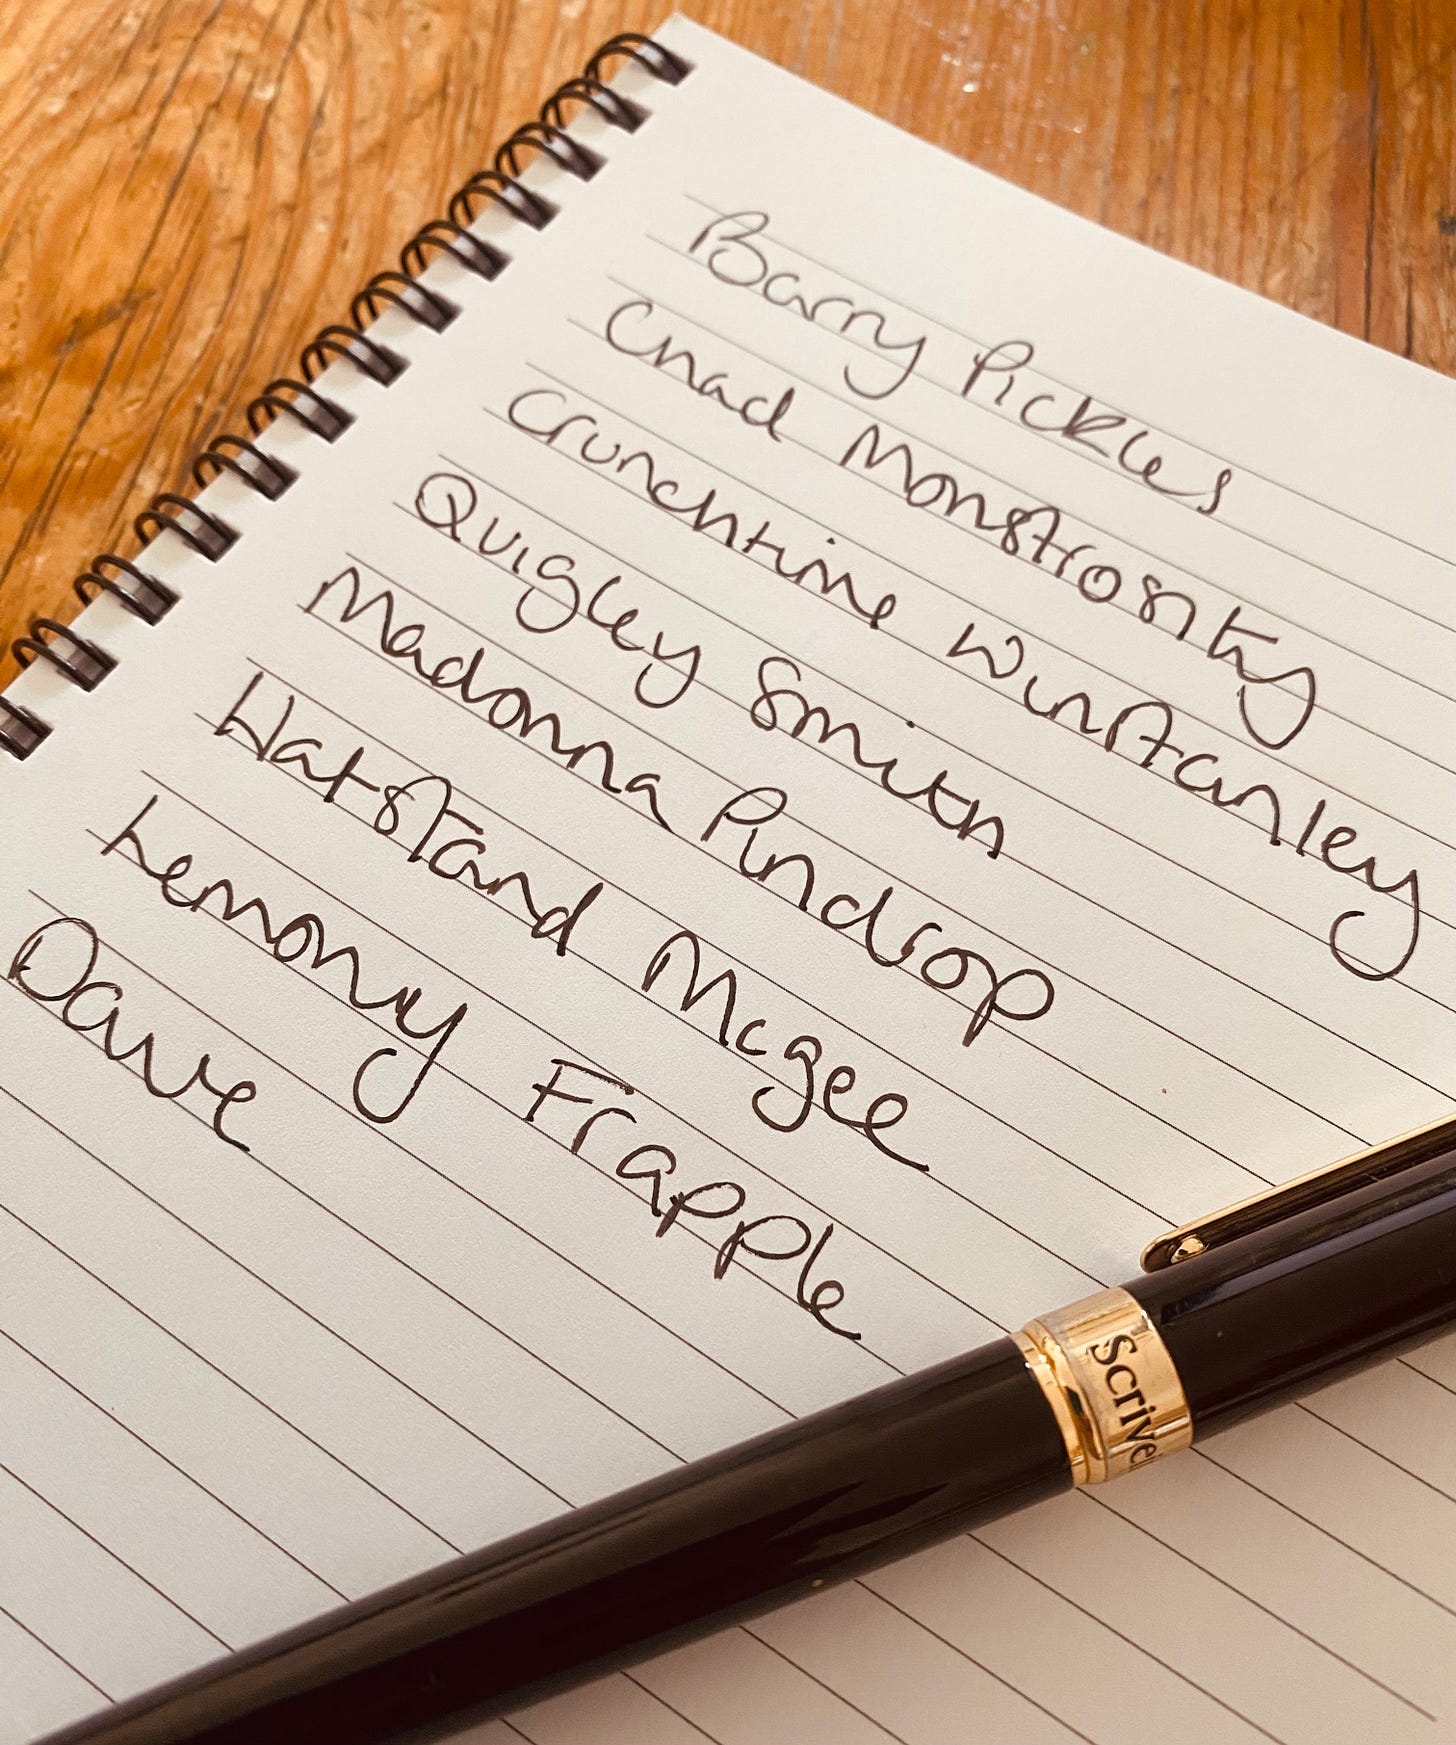 Barry Pickles
Chad Monstrosity
Crunchtime Winstanley
Quigley Smith
Madonna Pindrop
Hatstand McGee
Lemony Frapple
Dave